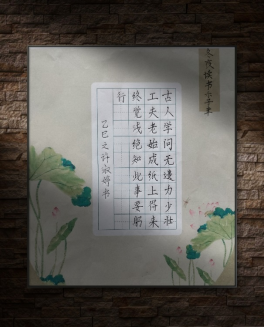 冬夜读书示子聿
古人学问无遗力少壮
工夫老始成纸上得来
终觉浅绝知此事要躬
行
乙巳 许 书